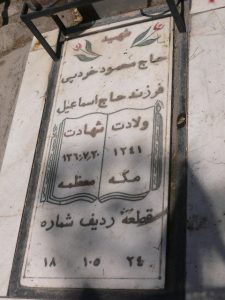 شهید
حاج محمود خردپی
فرزند حاج اسماعیل
ولادت شهادت
۱۲۴۱ ۱۳۶۰/۷/۲۰
مکه معظمه
قطعه ردیف شماره
۲۴ ۱۰۵ ۱۸